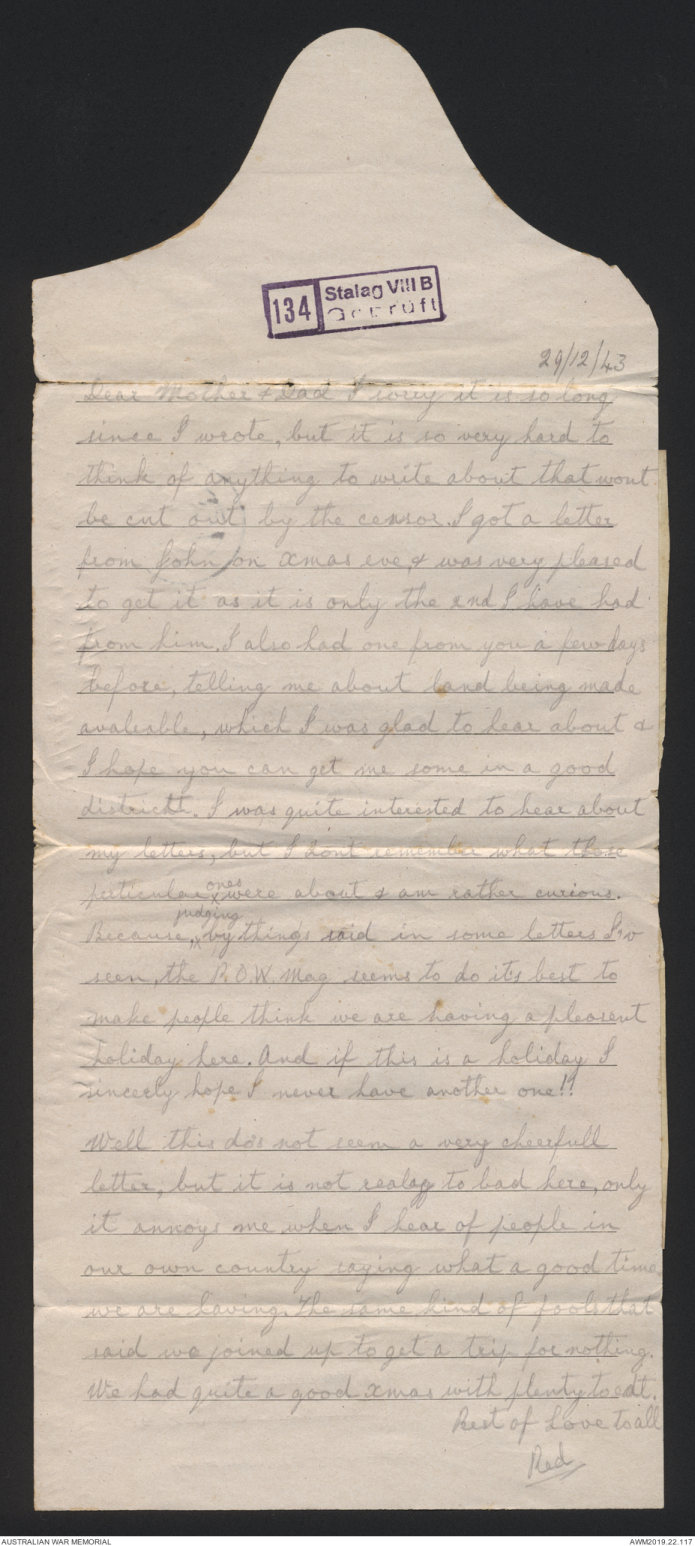 134
Stalag VIII B
Geprüft
29/12/43
Dear Mother & Dad I sorry it is so long
since I wrote, but it is so very hard to
think of anything to write about that wont
be cut out by the censor. I got a letter
from John on xmas eve, & was very pleased
to get it as it is only the 2nd I have had
from him. I also had one from you a few days
before, telling me about land being made
avaleable, which I was glad to hear about &
I hope you can get me some in a good
districkt. I was quite interested to hear about
my letters, but I dont remember what those
perticular ones were about & am rather curious.
Because, judging by things said in some letters I'v
seen, the P.O.W. Mag seems to do it's best to
make people think we are having a pleasent
holiday here. And if this is a holiday I
sincerly hope I never have another one!!
Well this dos not seem a very cheerfull
letter, but it is not realey to bad here, only
it annoys me when I hear of people in
our own country saying what a good time
we are having. The same kind of fools that
said we joined up to get a trip for nothing.
We had quite a good xmas with plenty to eat.
Best of Love to all
Red
AUSTRALIAN WAR MEMORIAL
AWM2019.22.117